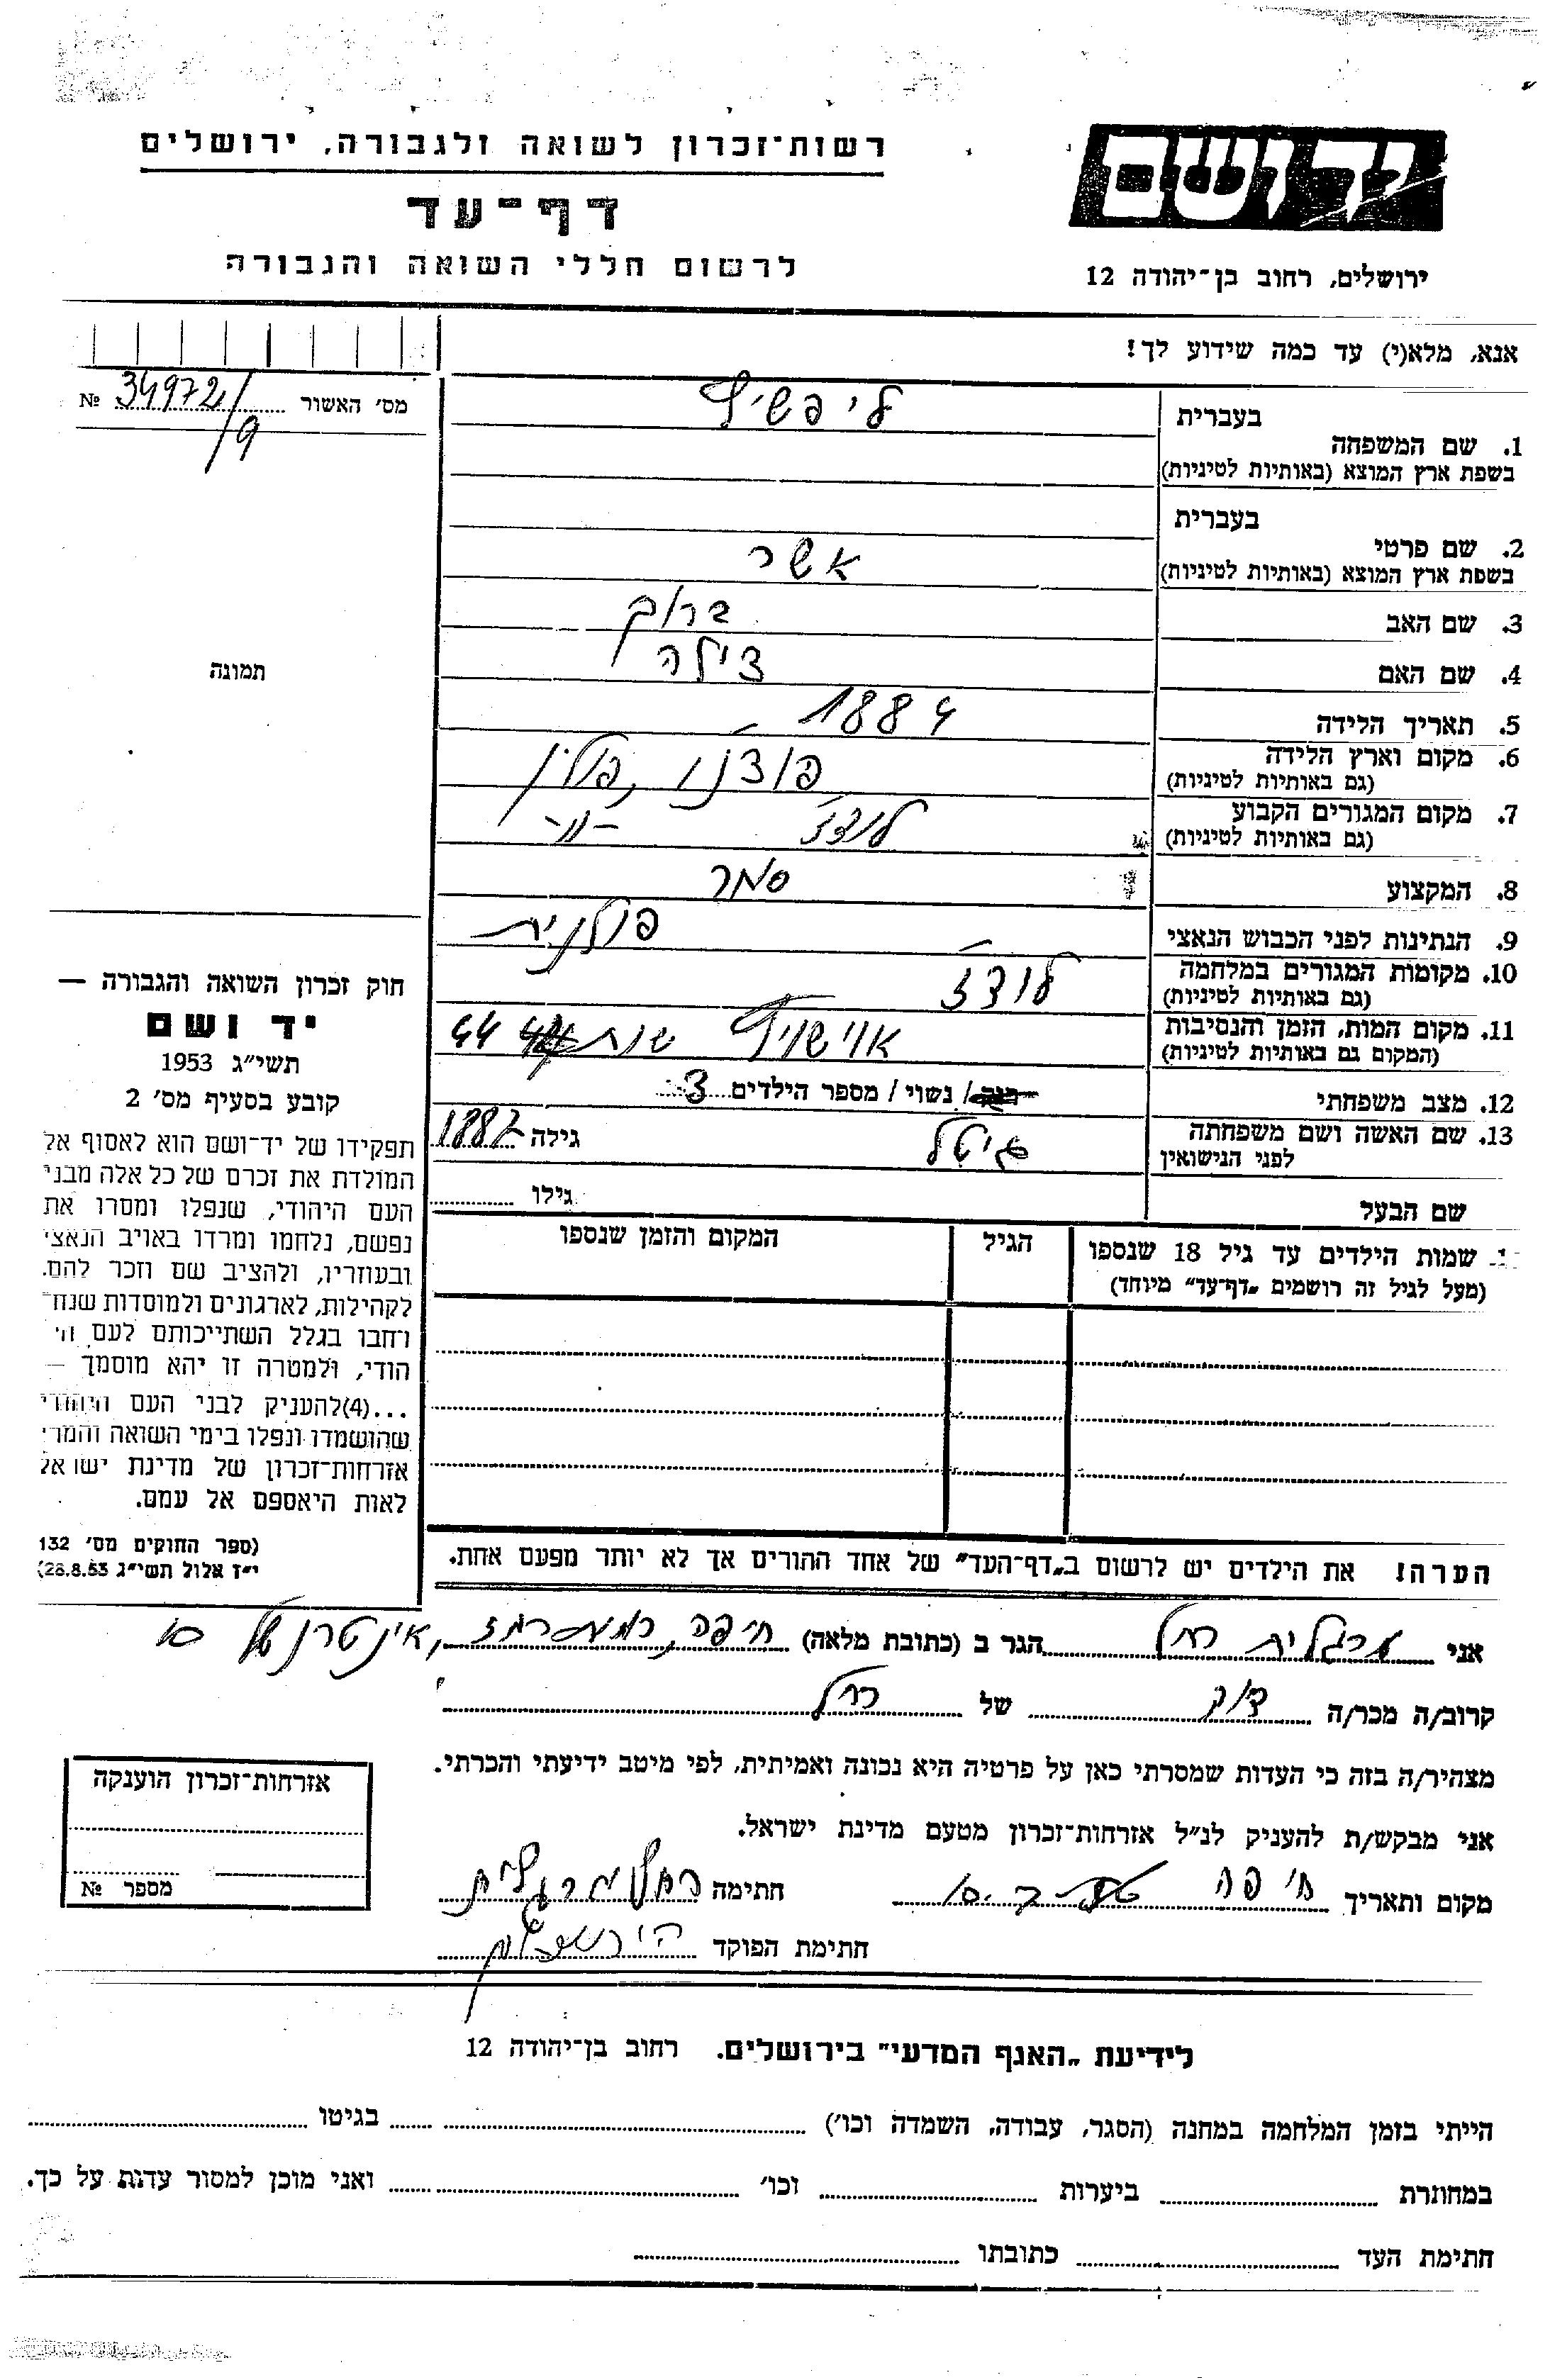 רשות־זכרון לשואה ולגבורה, ירושלים
יד ושם
דף־עד
לרשום חללי השואה והגבורה
ירושלים, רחוב בן־יהודה 12
אנא, מלא(י) עד כמה שידוע לך!
מס׳ האשור 34972/9 №
תמונה
1. שם המשפחה
בעברית ליפשיץ
בשפת ארץ המוצא (באותיות לטיניות)
בעברית
2. שם פרטי
בשפת ארץ המוצא (באותיות לטיניות) אשר
3. שם האב ברוך
4. שם האם צילה
5. תאריך הלידה 1884
6. מקום וארץ הלידה פוזנו, פולין
(גם באותיות לטיניות)
7. מקום המגורים הקבוע לודז׳ -״-
(גם באותיות לטיניות)
8. המקצוע סוחר
9. הנתינות לפני הכבוש הנאצי פולנית
10. מקומות המגורים במלחמה לודז׳
(גם באותיות לטיניות)
11. מקום המות, הזמן והנסיבות אושויץ שנת 44
(המקום גם באותיות לטיניות)
12. מצב משפחתי רוק / נשוי / מספר הילדים 3
13. שם האשה ושם משפחתה גיטל גילה 1887
לפני הנישואין
שם הבעל גילו
שמות הילדים עד גיל 18 שנספו הגיל המקום והזמן שנספו
(מעל לגיל זה רושמים „דף־עד״ מיוחד)
חוק זכרון השואה והגבורה —
יד ושם
תשי״ג 1953
קובע בסעיף מס׳ 2
תפקידו של יד־ושם הוא לאסוף אל
המולדת את זכרם של כל אלה מבני
העם היהודי, שנפלו ומסרו את
נפשם, נלחמו ומרדו באויב הנאצי
ובעוזריו, ולהציב שם וזכר להם,
לקהילות, לארגונים ולמוסדות שנח־
רחבו בגלל השתייכותם לעם הי
הודי, ולמטרה זו יהא מוסמך —
...(4)להעניק לבני העם היהודי
שהושמדו ונפלו בימי השואה והמרי
אזרחות־זכרון של מדינת ישראל
לאות היאספם אל עמם.
(ספר החוקים מס׳ 132
י״ז אלול תשי״ג 28.8.53)
הערה! את הילדים יש לרשום ב„דף־העד״ של אחד ההורים אך לא יותר מפעם אחת.
אני מרגלית רחל הגר ב (כתובת מלאה) חיפה,
קרוב/ה מכר/ה של
מצהיר/ה בזה כי העדות שמסרתי כאן על פרטיה היא נכונה ואמיתית, לפי מיטב ידיעתי והכרתי.
אני מבקש/ת להעניק לנ״ל אזרחות־זכרון מטעם מדינת ישראל.
מקום ותאריך חיפה חתימה רחל מרגלית
חתימת הפוקד
אזרחות־זכרון הוענקה
מספר №
לידיעת „האגף המדעי״ בירושלים. רחוב בן־יהודה 12
הייתי בזמן המלחמה במחנה (הסגר, עבודה, השמדה וכו׳) בגיטו
במחתרת ביערות וכו׳ ואני מוכן למסור עדות על כך.
חתימת העד כתובתו